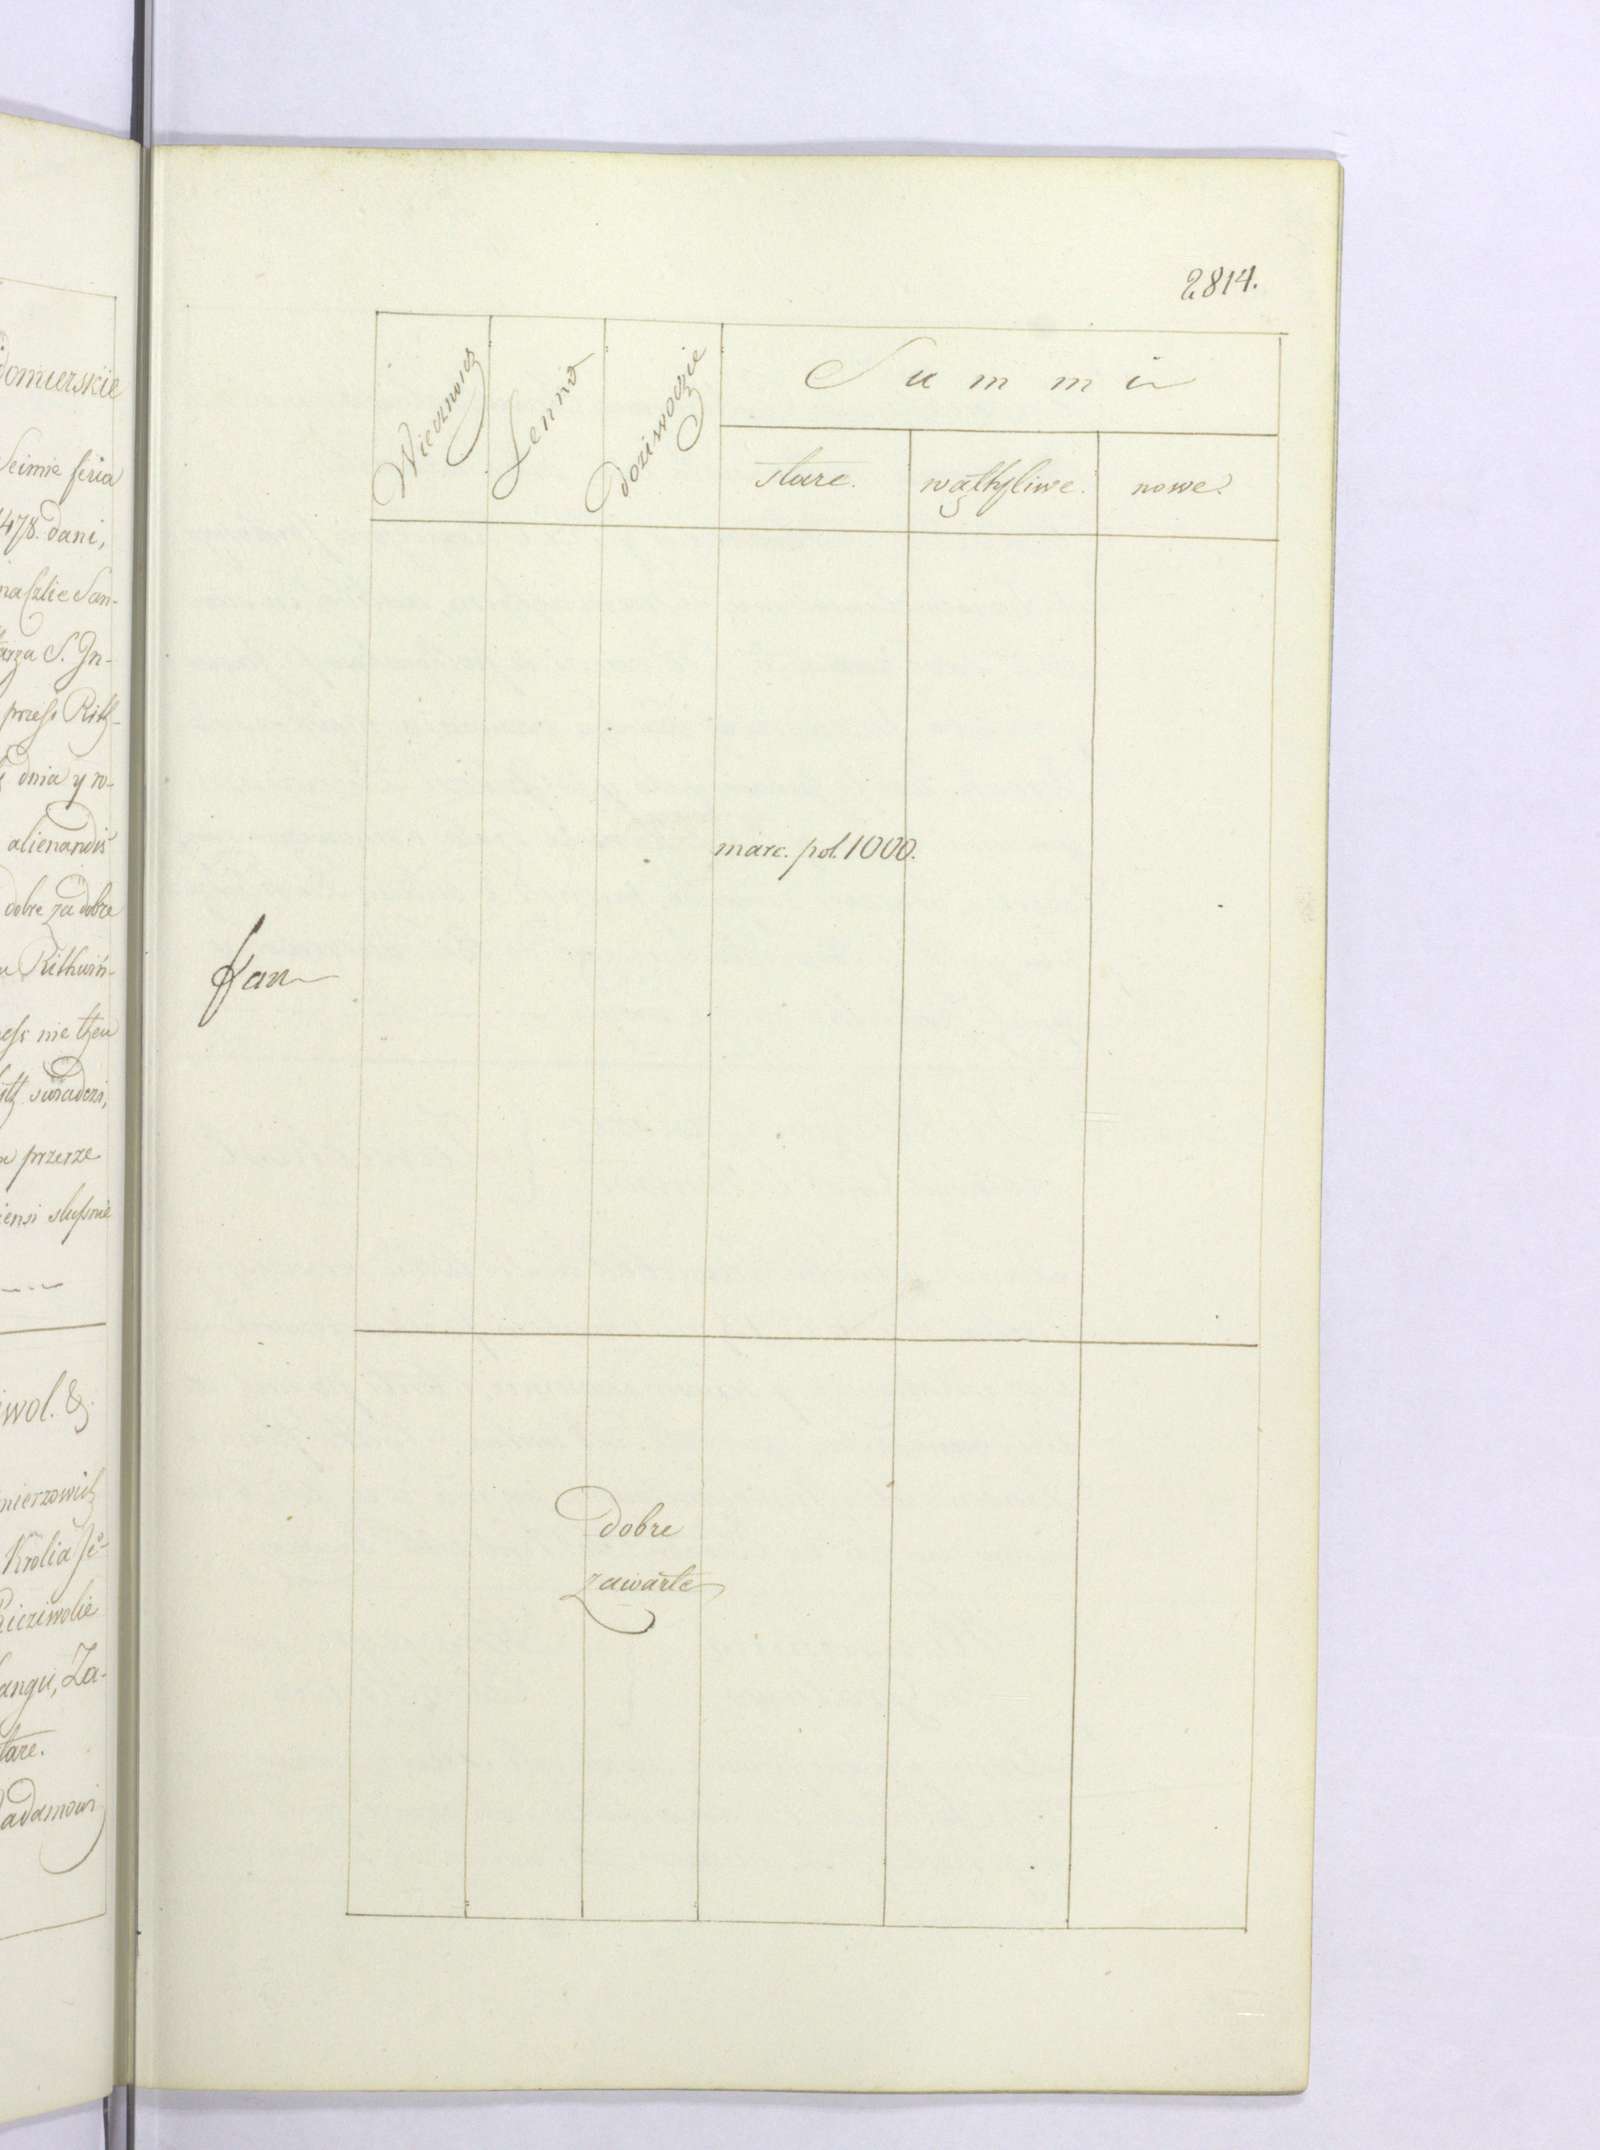 domierskie
Seimie feria
1478. dani,
naszlie San-
arza S. Jn-
przess Rith-
dnia y ro-
alienandis
dobre za dobre
Rithwin-
ess nie then
swiadczi,
przerze
iensi slussnie
iwol. &.
mierzowich
Krolia Je-
Rieziwolie
langu, Za-
tare.
adamowi
2814.
Wiecznoscz
Lenno
doziwoczie
Summi
stare. wąthpliwe. nowe.
marc. pol. 1000.
dobre
zawarte